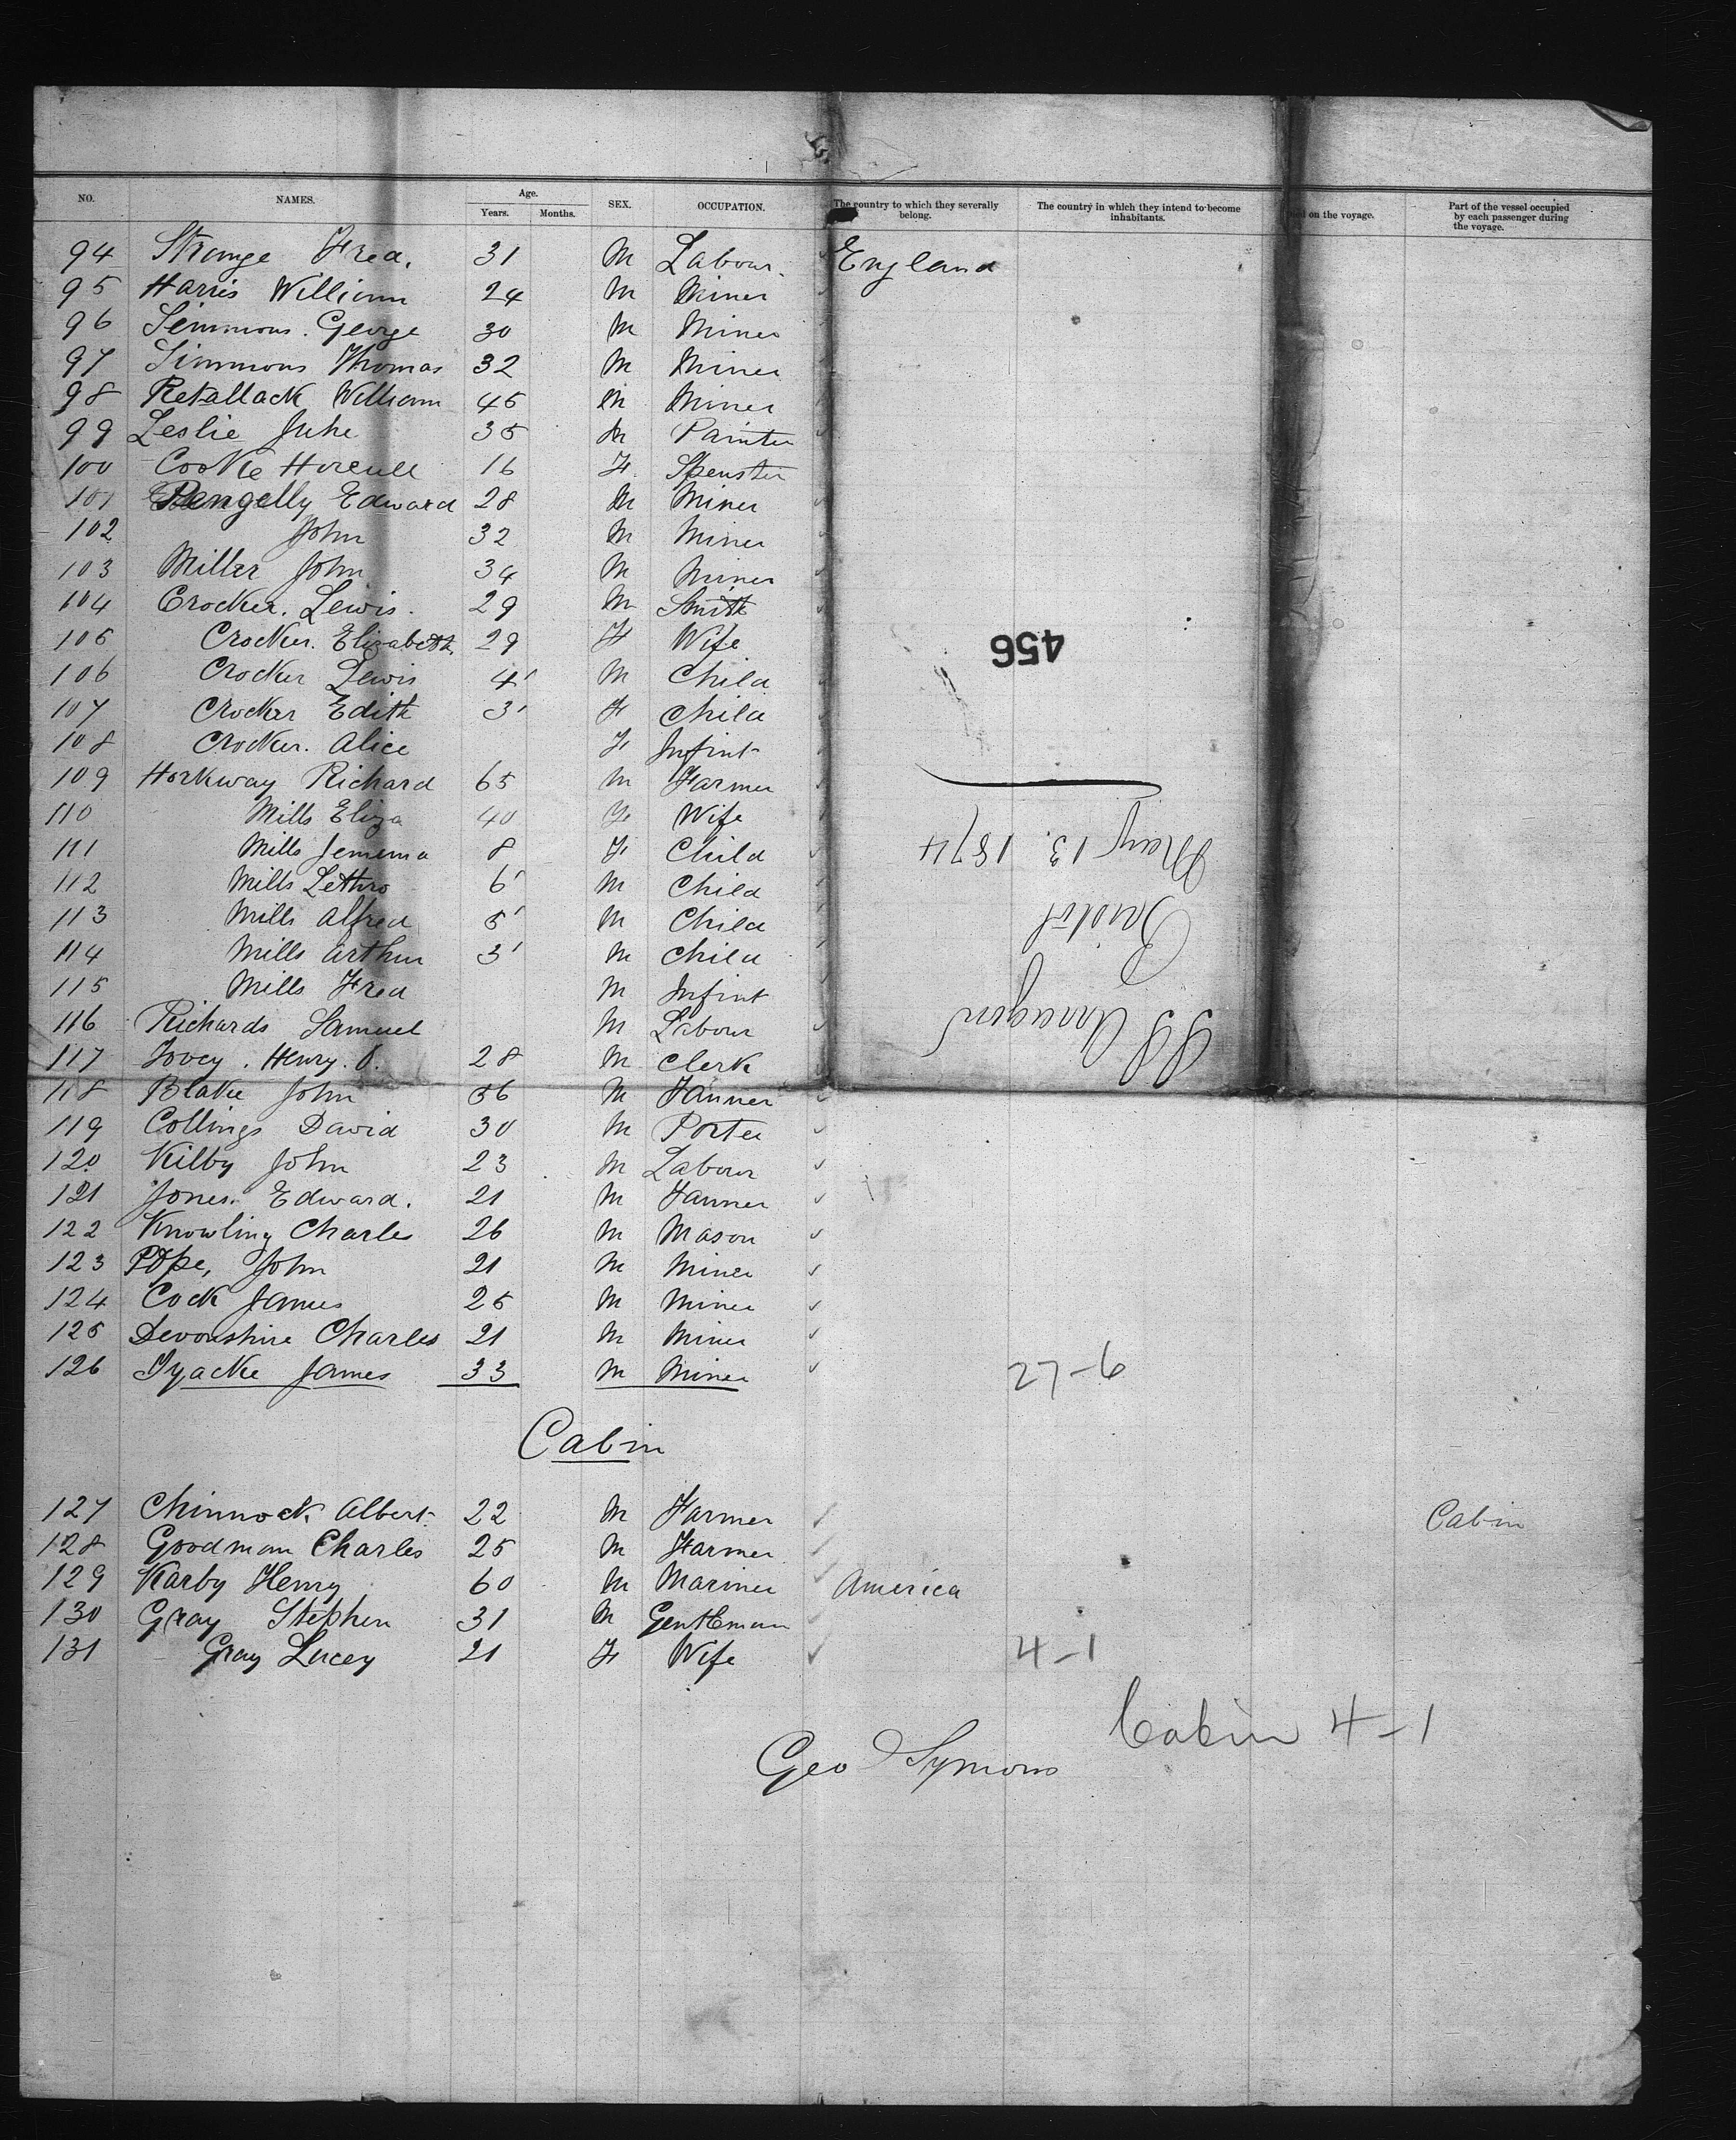 NO. NAMES. Age. Years. Months. SEX. OCCUPATION. The country to which they severally belong. The country in which they intend to become inhabitants. on the voyage. Part of the vessel occupied by each passenger during the voyage.
94 Strange Fred. 31 M Labour. England
95 Harris William 24 M Miner
96 Simmons. George 30 M Miner
97 Simmons Thomas 32 M Miner
98 Retallack William 45 M Miner
99 Leslie 35 M Painter
100 Cookie 16 F. Spenster
101 Pengelly Edward 28 M Miner
102 John 32 M Miner
103 Miller John 34 M Miner
104 Crocker. Lewis. 29 M Smith
105 Crocker. Elizabeth 29 F Wife
106 Crocker Lewis 4 M Child
107 Crocker Edith 3 F Child
108 Crocker. Alice F Infint
109 Horkway Richard 65 M Farmer
110 Mills Eliza 40 F Wife
111 Mills Jemema 8 F Child
112 Mills Lethro 6 M Child
113 Mills Alfred 5 M Child
114 Mills Arthur 3 M Child
115 Mills Fred M Infint
116 Richards Samuel M Labour
117 Tovey. Henry. 28 M Clerk
118 Blake John 56 M Tanner
119 Collings David 30 M Porter
120 Kilby John 23 M Labour
121 Jones. Edward. 21 M Tanner
122 Knowling Charles 26 M Mason
123 Pope, John 21 M Miner
124 Cock James 25 M Miner
125 Devonshire Charles 21 M Miner
126 Tyacke James 33 M Miner
27-6
456
SS Arragon
Bristol
May 13. 1874
Cabin
127 Chinnock Albert 22 M Farmer Cabin
128 Goodman Charles 25 M Farmer
129 Karby Henry 60 M Mariner America
130 Gray Stephen 31 M Gentleman
131 Gray Lucey 21 F Wife
4-1
Cabin 4-1
Geo Symons